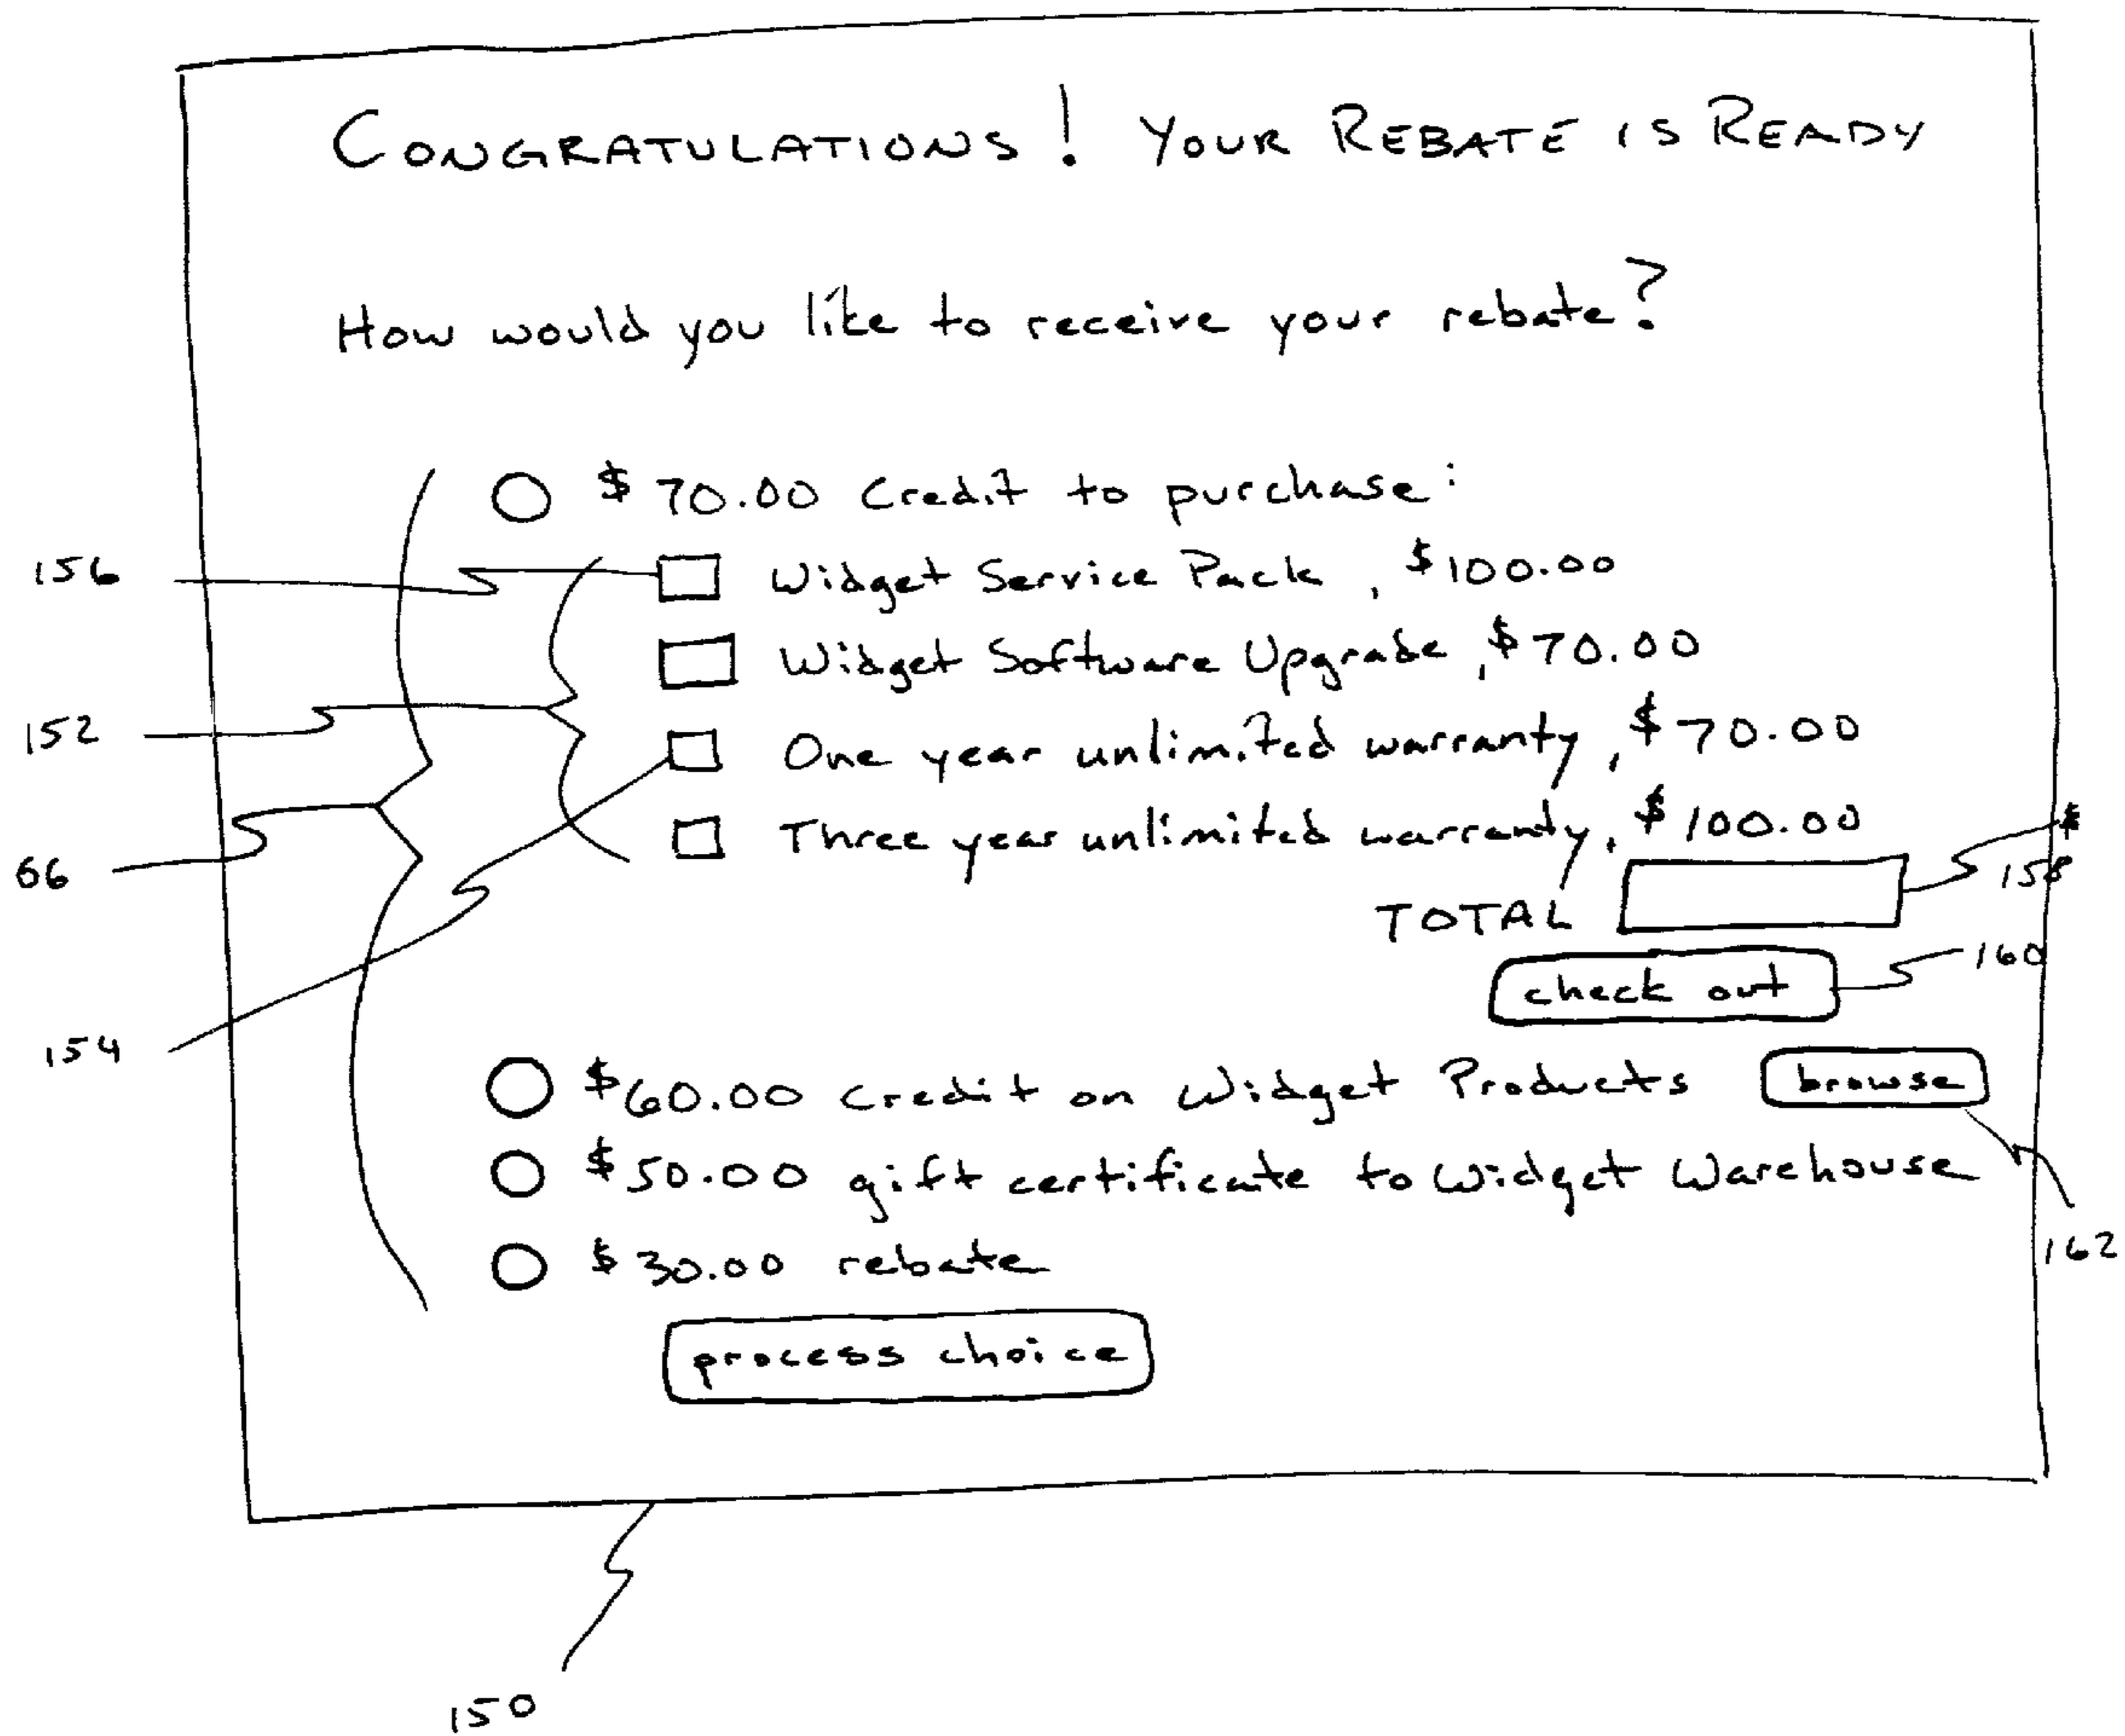 CONGRATULATIONS! YOUR REBATE IS READY
How would you like to receive your rebate?
$70.00 Credit to purchase:
156 Widget Service Pack, $100.00
Widget Software Upgrade, $70.00
152 One year unlimited warranty, $70.00
Three year unlimited warranty, $100.00
66
158
TOTAL
160
check out
154
$60.00 credit on Widget Products browse
$50.00 gift certificate to Widget Warehouse
162
$30.00 rebate
process choice
150